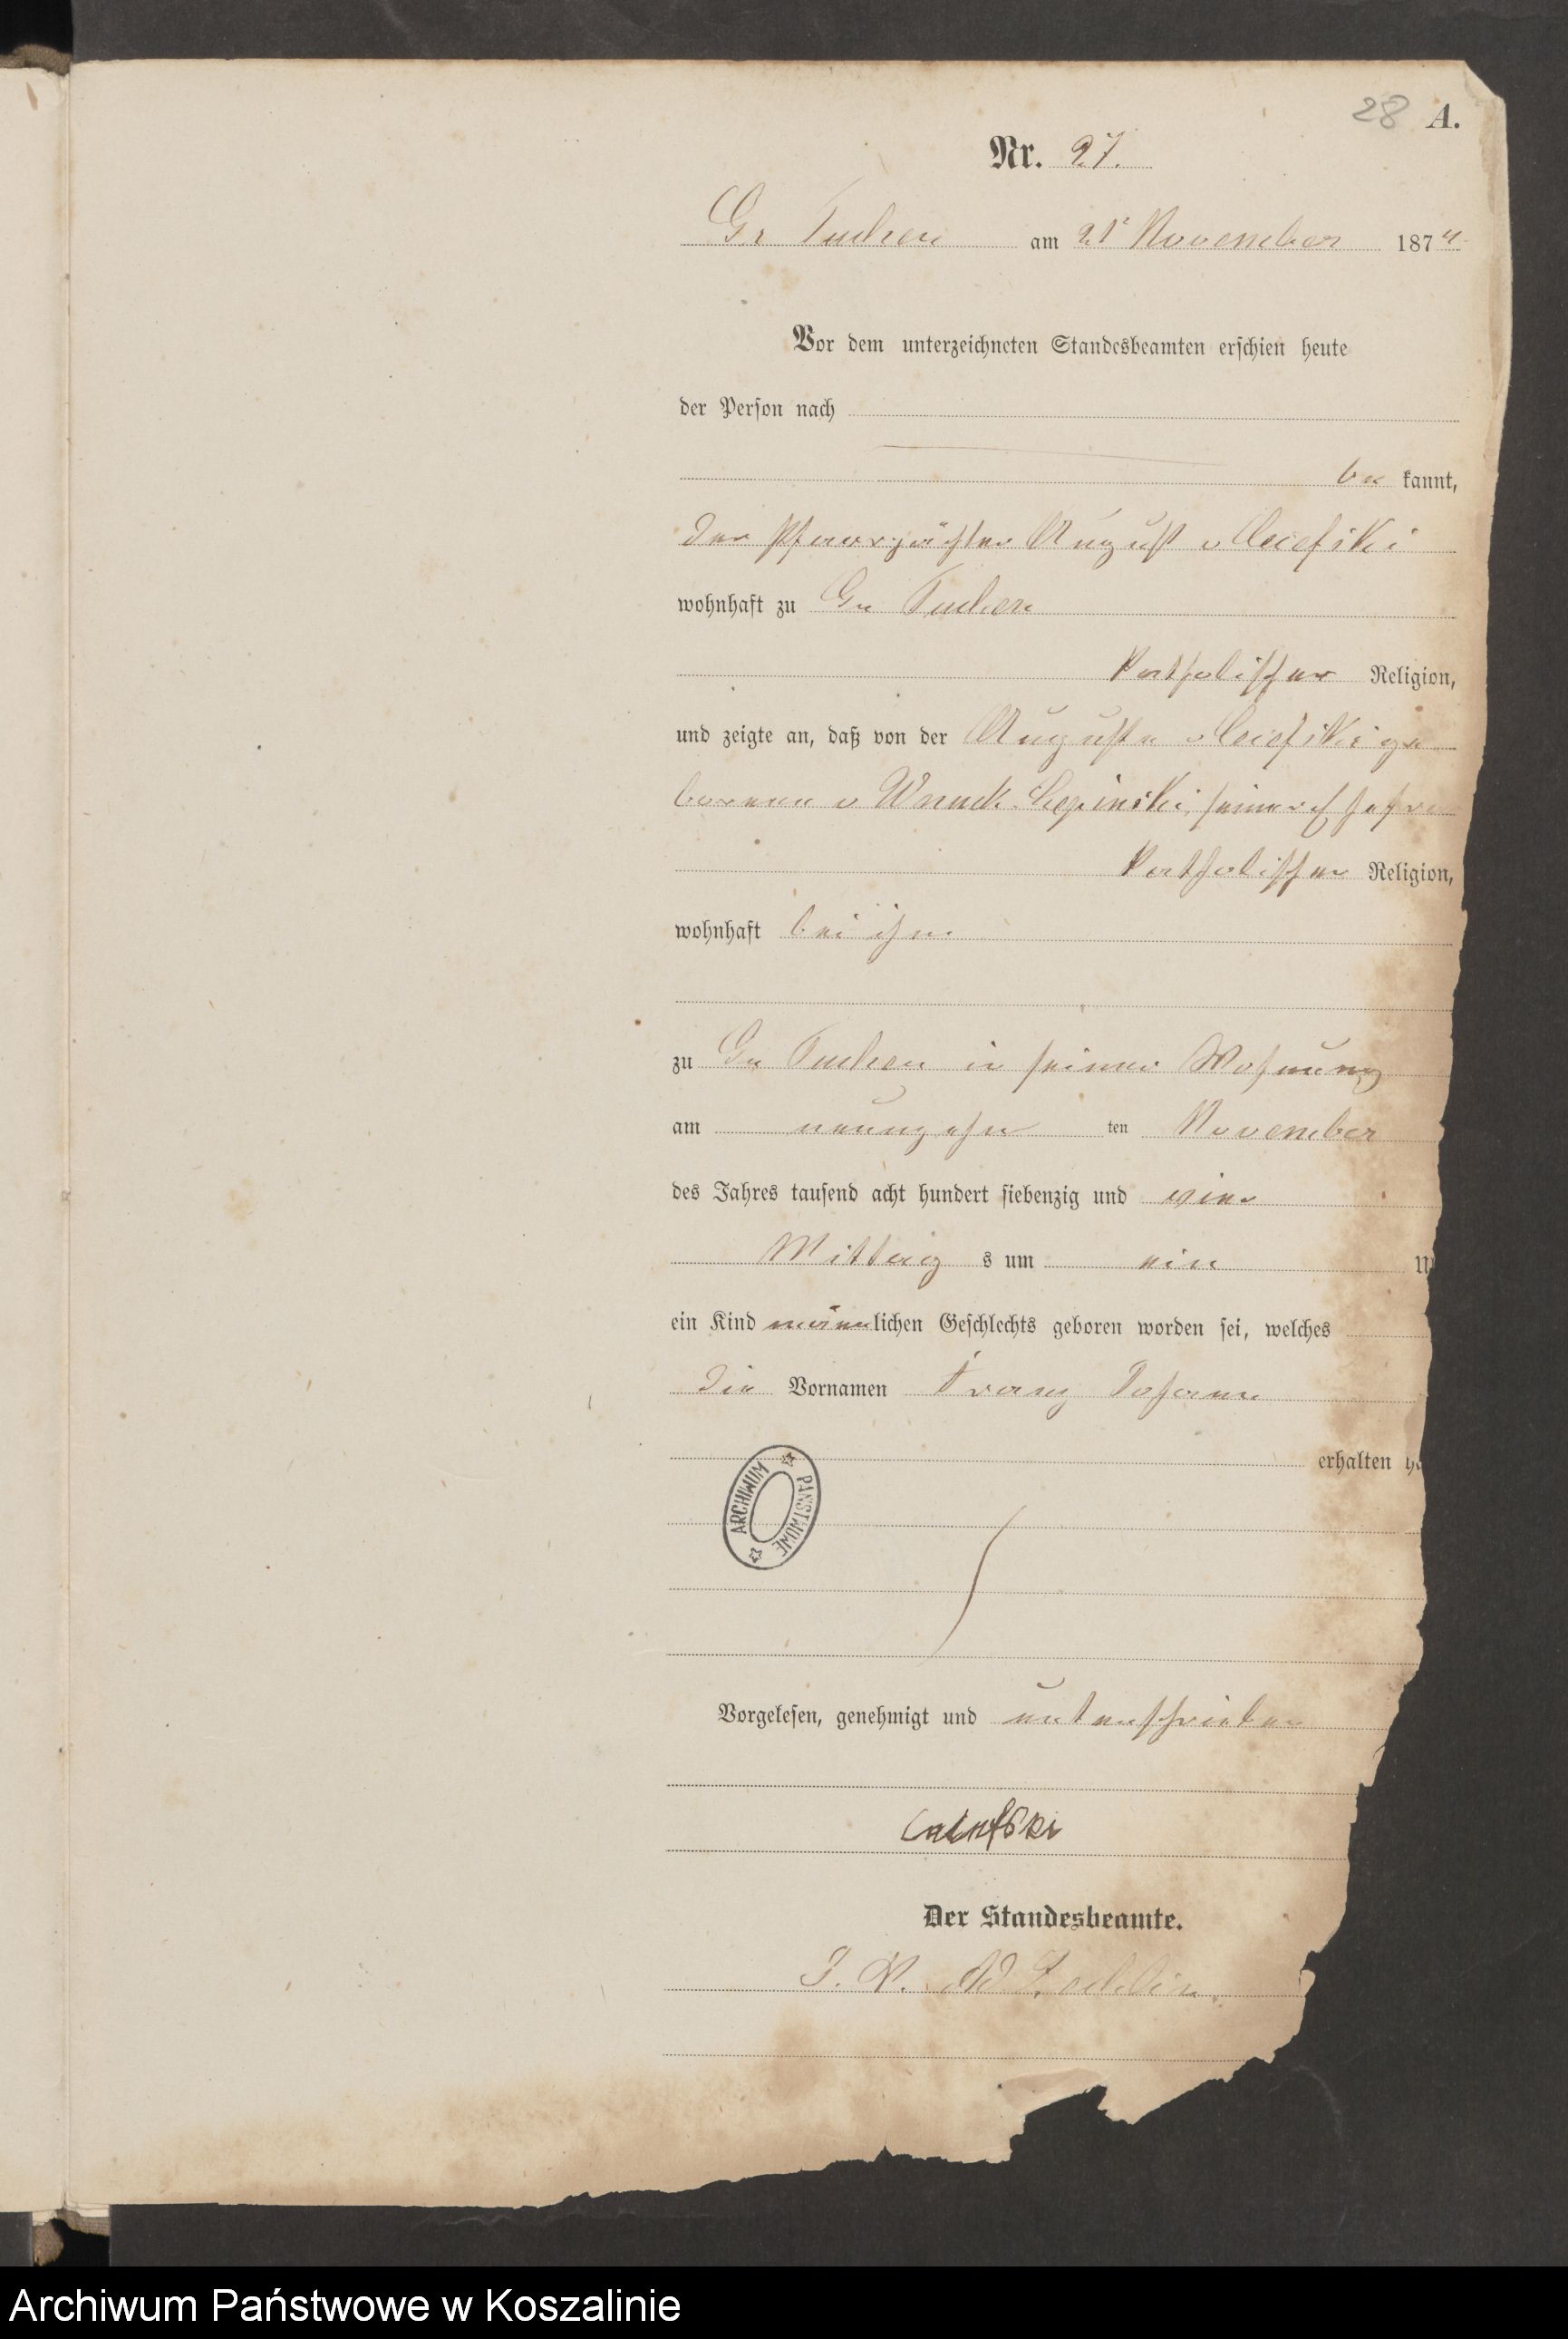 28 A.
Nr. 27.
Gr Tuchen am 21t November 1874
Vor dem unterzeichneten Standesbeamten erschien heute
der Person nach
be kannt,
der Pfarrpächter August v
wohnhaft zu Gr Tuchen
katholischer Religion,
und zeigte an, daß von der Auguste v ge
borenen v Wnuck Lepinski, seiner Ehefrau
katholischer Religion,
wohnhaft bei ihm
zu Gr Tuchen in seiner Wohnung
am neunzehn ten November
des Jahres tausend acht hundert siebenzig und vier
Mittag s um ein
ein Kind männlichen Geschlechts geboren worden sei, welches
die Vornamen Franz Johann
erhalten
ARCHIWUM PAŃSTWOWE
Vorgelesen, genehmigt und unterschrieben
Der Standesbeamte.
J. V.
Archiwum Państwowe w Koszalinie